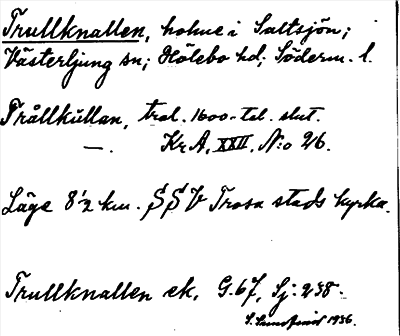 Trullknallen, holme i Saltsjön;
Västerljung sn; Hölebo hd; Söderm. l.
Trållkullan, trol. 1600-tal. slut.
—. Kr A, XXII, N:o 26.
Läge 8 1/2 km. SSV Trosa stads kyrka.
Trullknallen ek, G.67, Sj: 238.
1936.